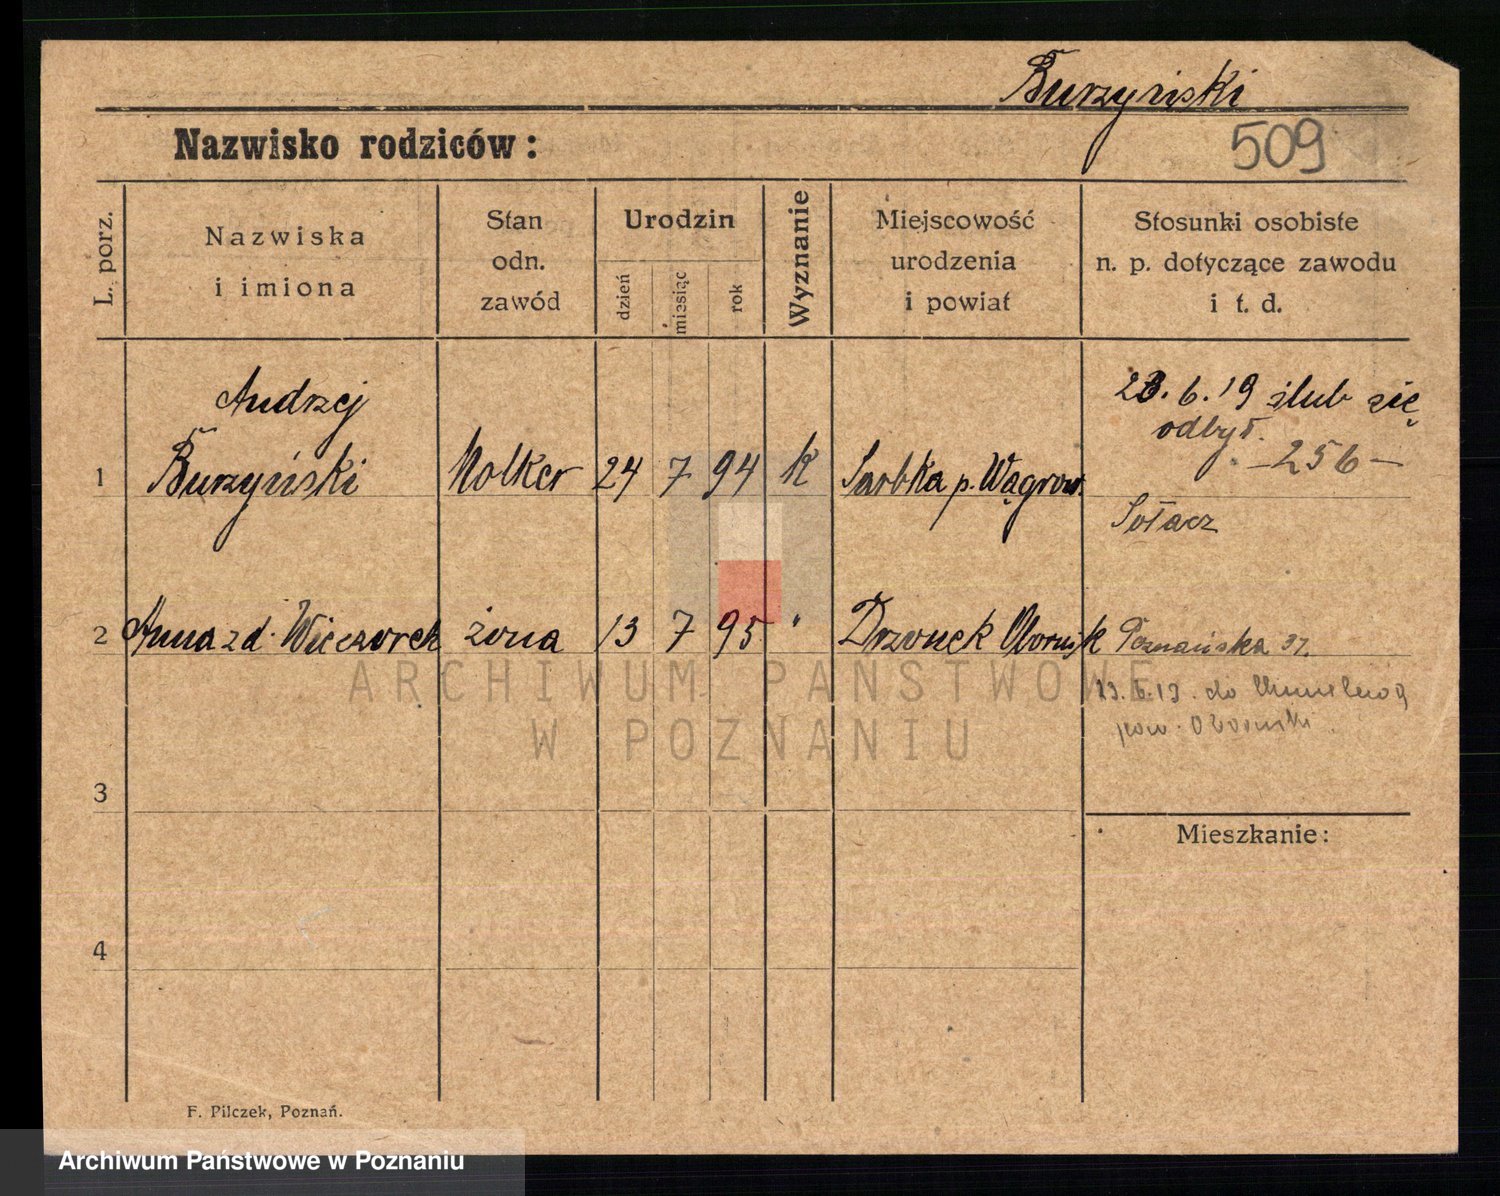 Burzyński
Nazwisko rodziców:
509
L. porz.
Nazwiska
i imiona
Stan
odn.
zawód
Urodzin
dzień
miesiąc
rok
Wyznanie
Miejscowość
urodzenia
i powiat
Stosunki osobiste
n. p. dotyczące zawodu
i t. d.
Andrzej
1 Burzyński Molker 24 7 94 K Sarbka p. Wągrow.
23. 6. 19 ślub się
odbył.
-256-
Sołacz
2 Anna zd. Wieczorek żona 13 7 95 " Drzonek Obornik Poznańska 37.
23. 6. 19. do
pow. Oborniki.
3
Mieszkanie:
4
F. Pilczek, Poznań.
ARCHIWUM PAŃSTWOWE
W POZNANIU
Archiwum Państwowe w Poznaniu